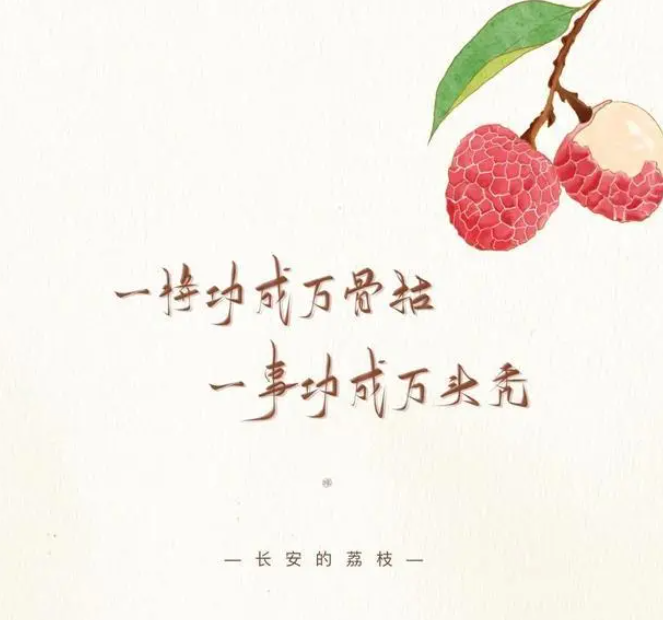 一将功成万骨枯
一事功成万头秃
— 长安的荔枝 —